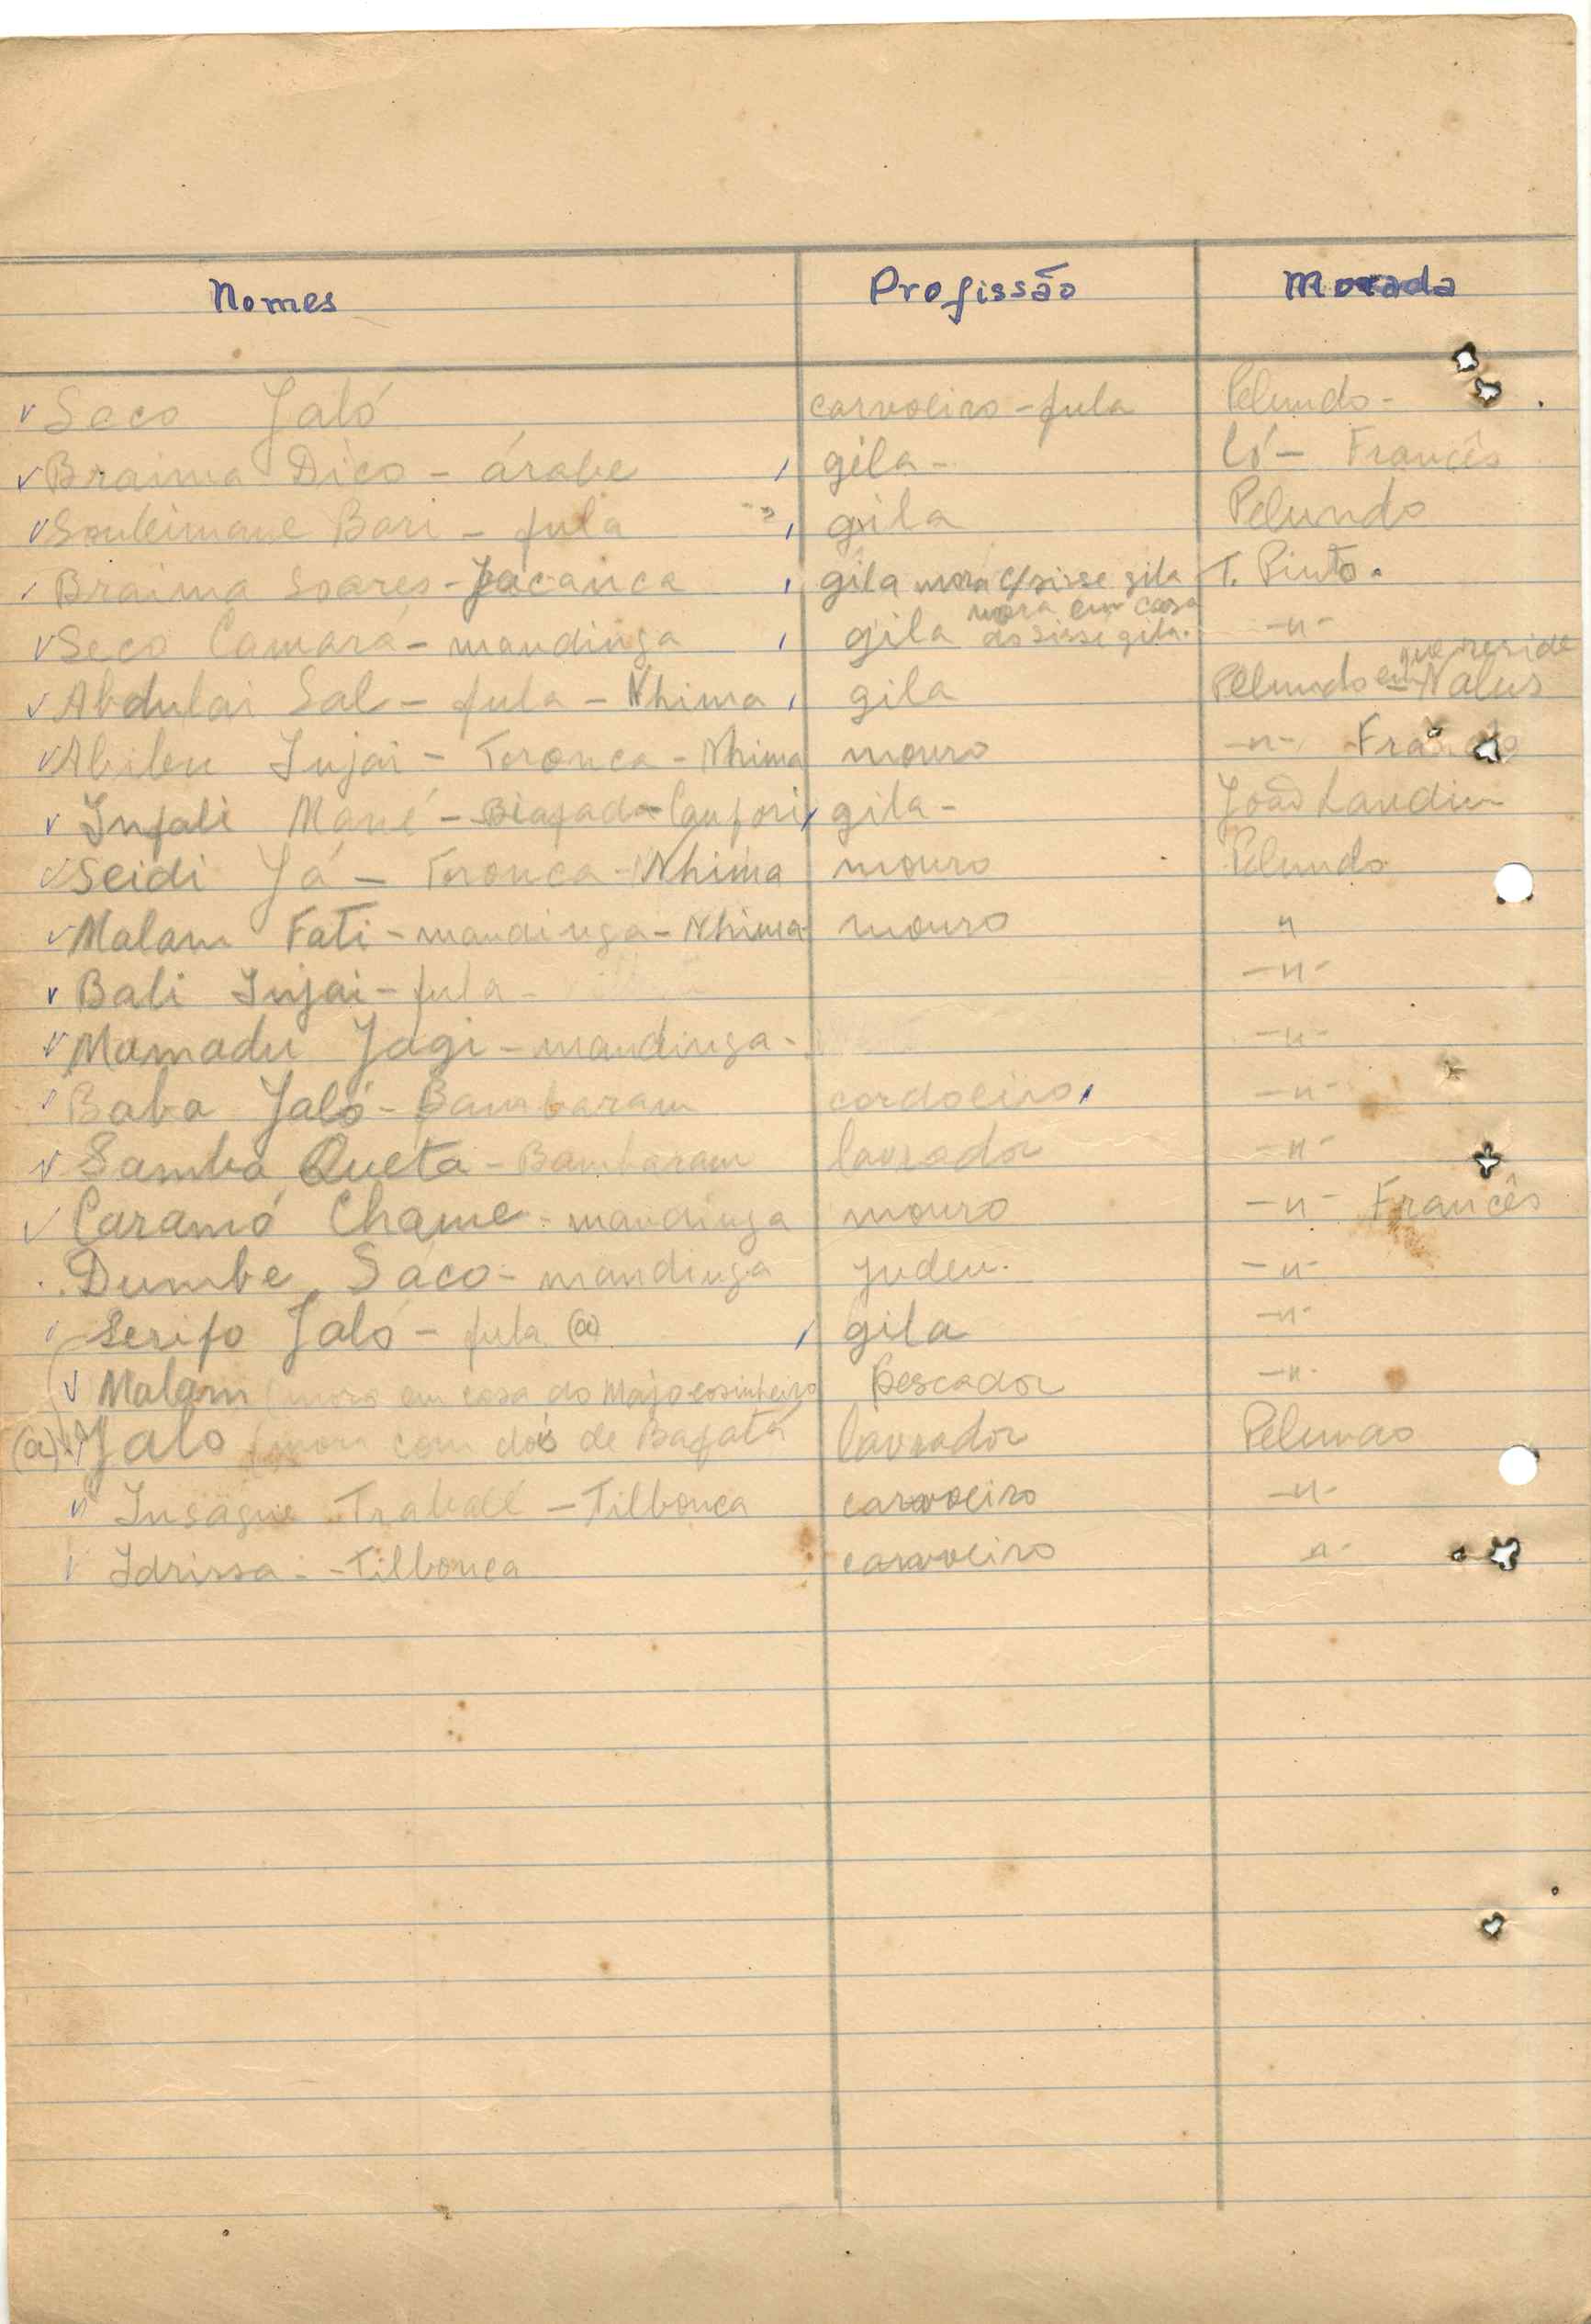 Nomes Profissão Morada
v Seco Jaló carvoeiro - fula Pelundo -
v Braima Dico - árabe , gila - Có - Francês
v Souleimane Bari - fula , gila Pelundo
v Braima Soares - Jacanca , gila mora c/ sisse gila T. Pinto.
v Seco Camará - mandinga , gila mora em casa do Sissé gila. -"-
v Abdulai Sal - fula - Nhima , gila Pelundo que reside em Nalus
v Abibu Injai - Toronca - Nhima mouro -"- Francês
v Infali Mané - Biafada - Canfori , gila - João Landim
v Seidi Já - Toronca - Nhima mouro Pelundo
v Malam Fati - mandinga - Nhima mouro "
v Bali Injai - fula - -"-
v Mamadu Jagi - mandinga - -"-
v Baba Jaló - Bambaram cordoeiro , -"-
v Samba Queta - Bambaram lavrador -"-
v Caramó Chame - mandinga mouro -"- Francês
Dumbe Saco - mandinga judeu. -"-
v Serifo Jaló - fula (a) , gila -"-
v Malam (mora em casa do Majo cosinheiro pescador -"-
(a) v Jalo (mora com dois de Bafatá lavrador Pelundo
v Insagne Traballé - Tilbonca carvoeiro -"-
v Idrissa - - Tilbonca carvoeiro -"-